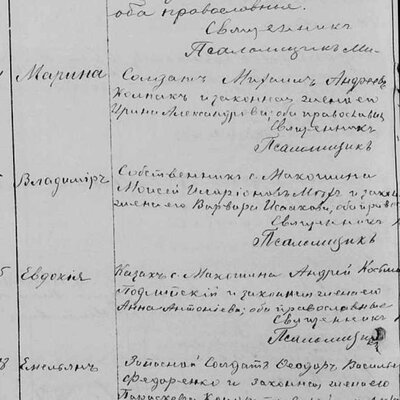 оба православные.
Священникъ
Псаломщикъ Ми-
Марина
Солдатъ Михаилъ Андреевъ
и законная жена его
Ирина Александрова; оба православн
Священникъ
Псаломщикъ
Владимiръ
Собственникъ с. Макошина
Моисей Иларiоновъ и закон
жена его Варвара Исаакова; оба прав
Священникъ
Псаломщикъ
Евдокiя
Казакъ с. Макошина Андрей Косьмин
и законная жена его
Анна Антонiева; оба православные
Священникъ
Псаломщикъ
Емелiанъ
Запасной Солдатъ Ѳеодоръ Василь
Федоренко и законная жена его
Параскева